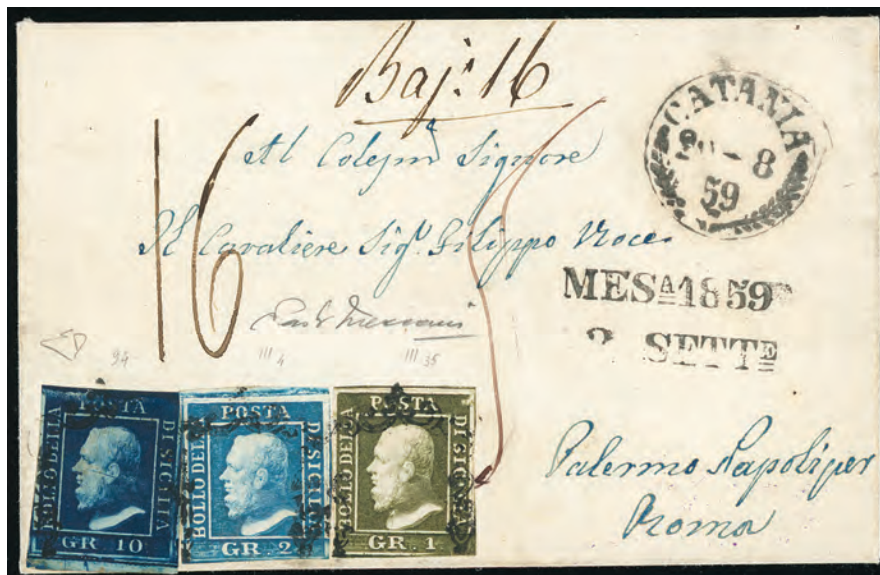 Baj: 16
CATANIA
8
59
16
Al Colejmo Signore
Il Cavaliere Sigr. Filippo Noce
MESA 1859
2 SETTE
94
III 4
III 35
POSTA
BOLLO DELLA
DI SICILIA
GR. 10
POSTA
BOLLO DELLA
DI SICILIA
GR. 2
POSTA
BOLLO DELLA
DI SICILIA
GR. 1
Palermo Napoli per
Roma